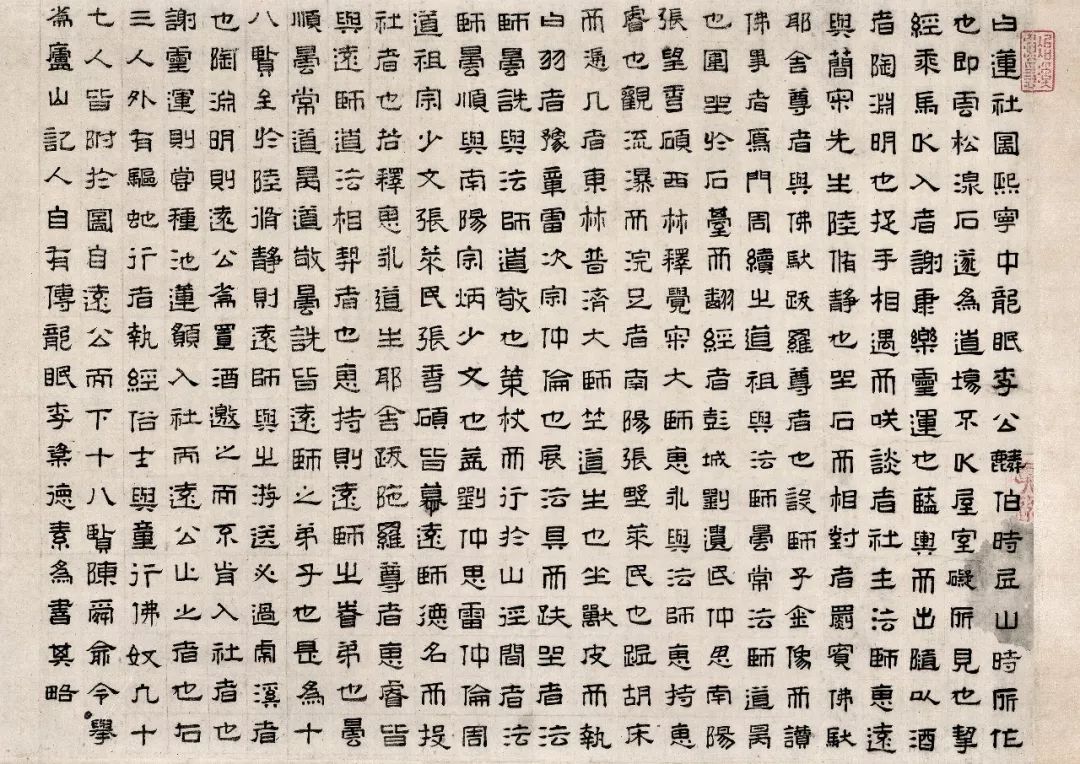 白蓮社圖熙寧中龍眠李公麟伯時丘山時所作
也即雲松湶石遂為道場不以屋室礙所見也挈
經乘馬以入者謝康樂靈運也藍輿而出隨以酒
者陶淵明也捉手相遇而咲談者社主法師惠遠
與簡寂先生陸脩靜也坐石而相對者罽賓佛馱
耶舍尊者與佛馱跋羅尊者也設師子金像而讚
佛事者鴈門周續之道祖與法師曇常法師道昺
也圍坐於石臺而翻經者彭城劉遺民仲思南陽
張望秀碩西林釋覺寂大師惠永與法師惠持惠
睿也觀流瀑而浣足者南陽張野萊民也踞胡床
而通几者東林普濟大師竺道生也坐獸皮而執
白羽者豫章雷次宗仲倫也展法具而趺坐者法
師曇詵與法師道敬也策杖而行於山徑間者法
師曇順與南陽宗炳少文也蓋劉仲思雷仲倫周
道祖宗少文張萊民張秀碩皆慕遠師德名而投
社者也若釋惠永道生耶舍跋陀羅尊者惠睿皆
與遠師道法相契者也惠持則遠師之眷弟也曇
順曇常道昺道敬曇詵皆遠師之弟子也是為十
八賢至於陸脩靜則遠師與之游送必過虎溪者
也陶淵明則遠公嘗置酒邀之而不肯入社者也
謝靈運則嘗種池蓮願入社而遠公止之者也右
三人外有驅虵行者執經俗士與童行佛奴凡十
七人皆附於圖自遠公而下十八賢陳舜俞令舉
嘗廬山記人自有傳龍眠李楶德素為書其略